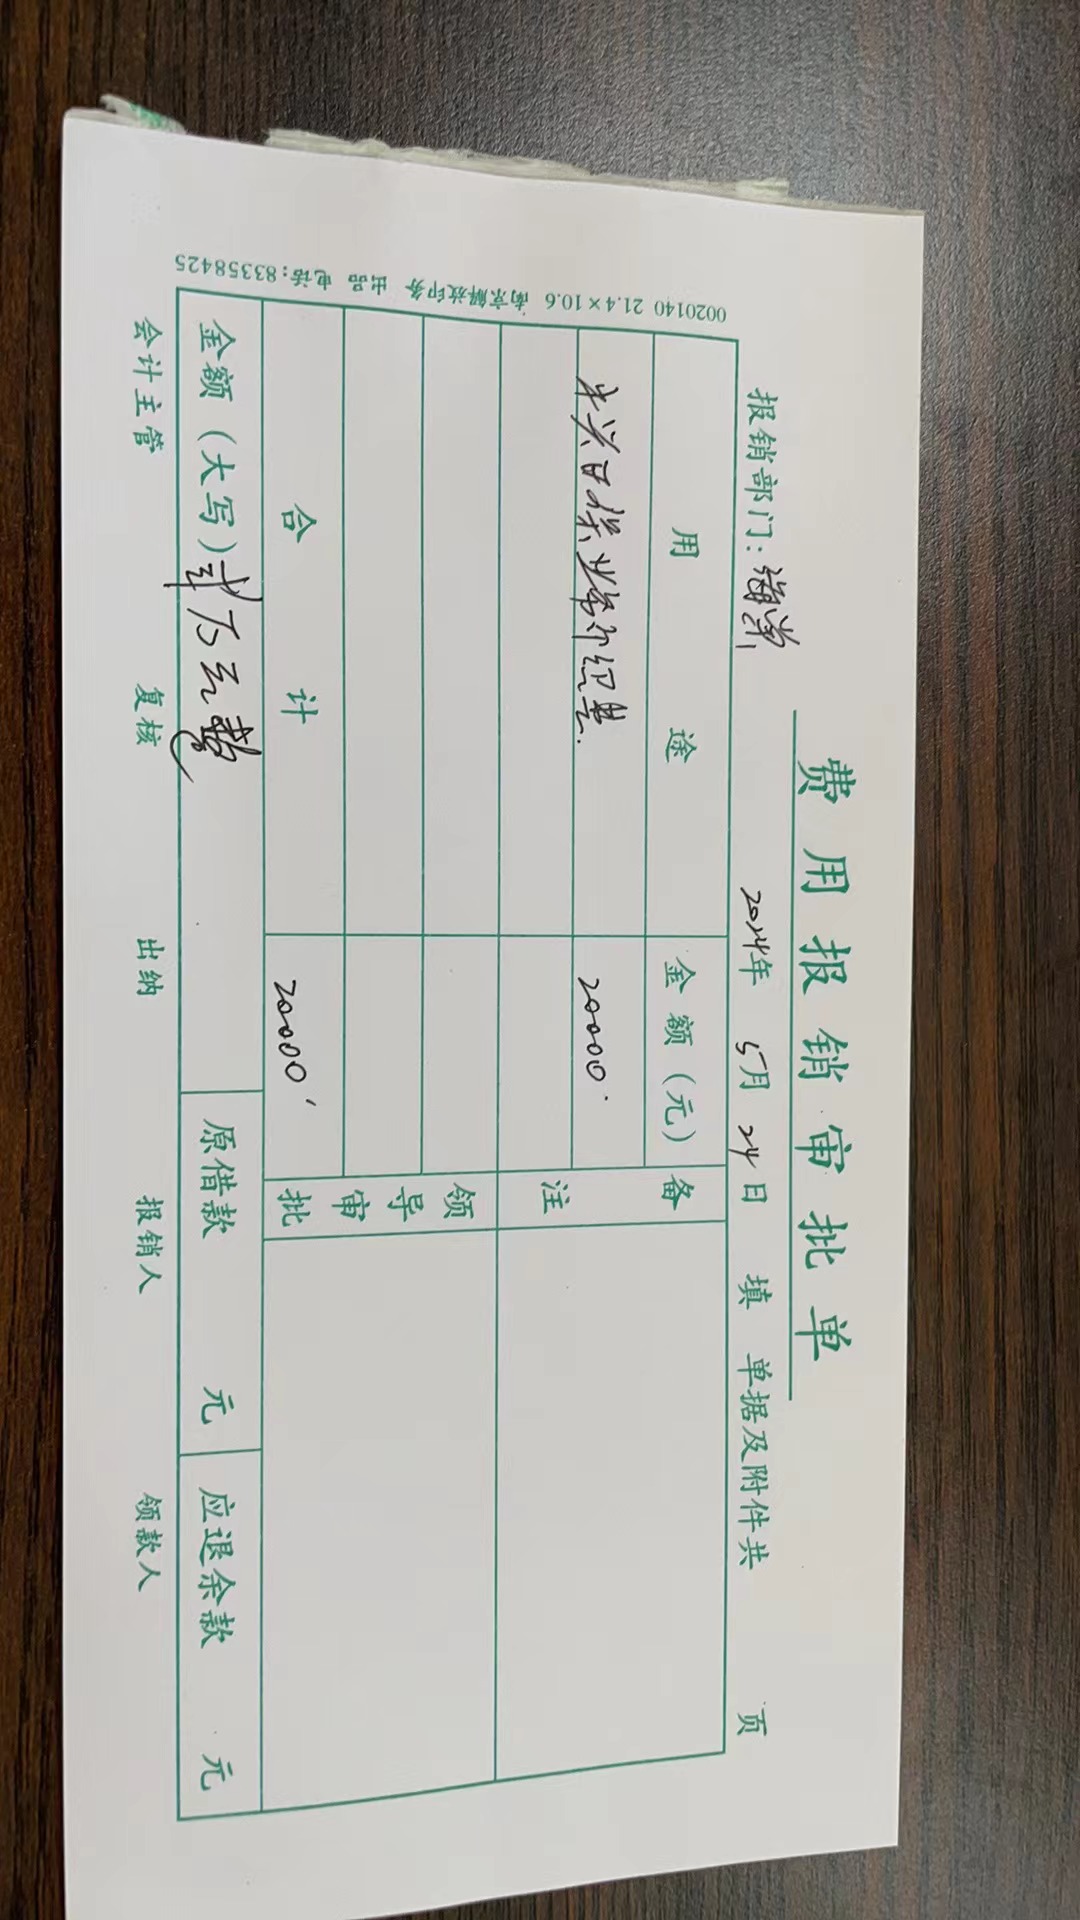 费用报销审批单
报销部门：海棠 2024年 5月 24日 填 单据及附件共 页
用 途 金额（元） 备注
日保业务介绍费. 20000.
领导审批
合 计 20000
金额（大写）贰万元整 原借款 元 应退余款 元
会计主管 复核 出纳 报销人 领款人
0020140 21.4×10.6 南京解放印务 出品 电话：83358425